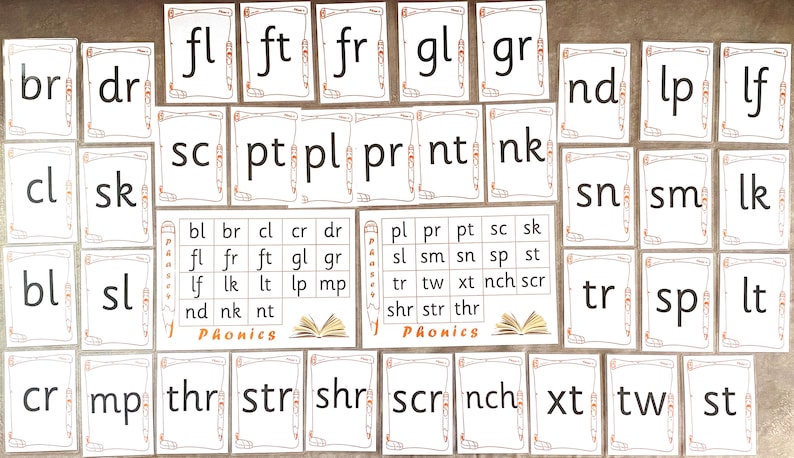 fl ft fr gl gr
br dr
nd lp lf
sc pt pl pr nt nk
cl sk
sn sm lk
Phase4
bl br cl cr dr
fl fr ft gl gr
lf lk lt lp mp
nd nk nt
Phonics
Phase4
pl pr pt sc sk
sl sm sn sp st
tr tw xt nch scr
shr str thr
Phonics
bl sl
tr sp lt
cr mp thr str shr scr nch xt tw st